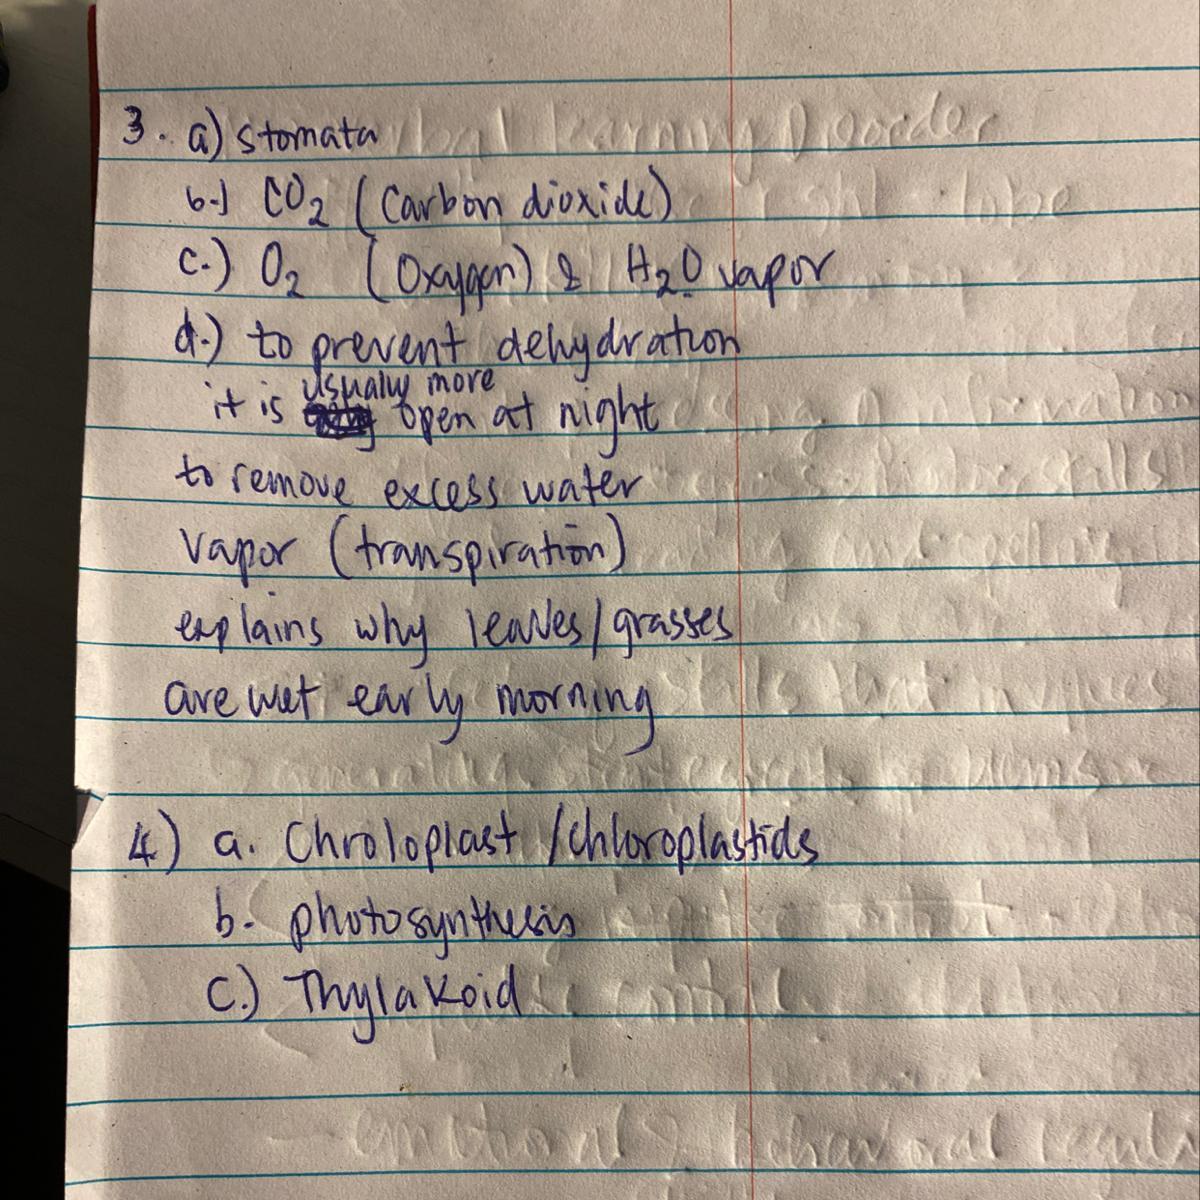 3. a) stomata
b.) CO₂ (Carbon dioxide)
c.) O₂ (Oxygen) & H₂O vapor
d.) to prevent dehydration
it is usually more open at night
to remove excess water
vapor (transpiration)
explains why leaves/grasses
are wet early morning
4) a. Chroloplast /chloroplastids
b. photosynthesis
C.) Thylakoid